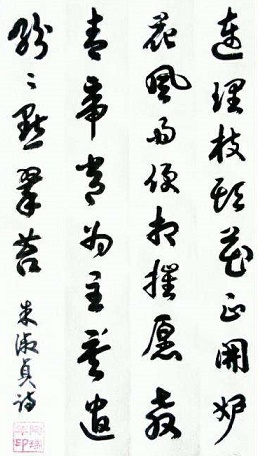 連理枝頭花正開妒
花風雨便相摧愿教
青帝常为主莫遣
紛〻點翠苔 朱淑貞詩